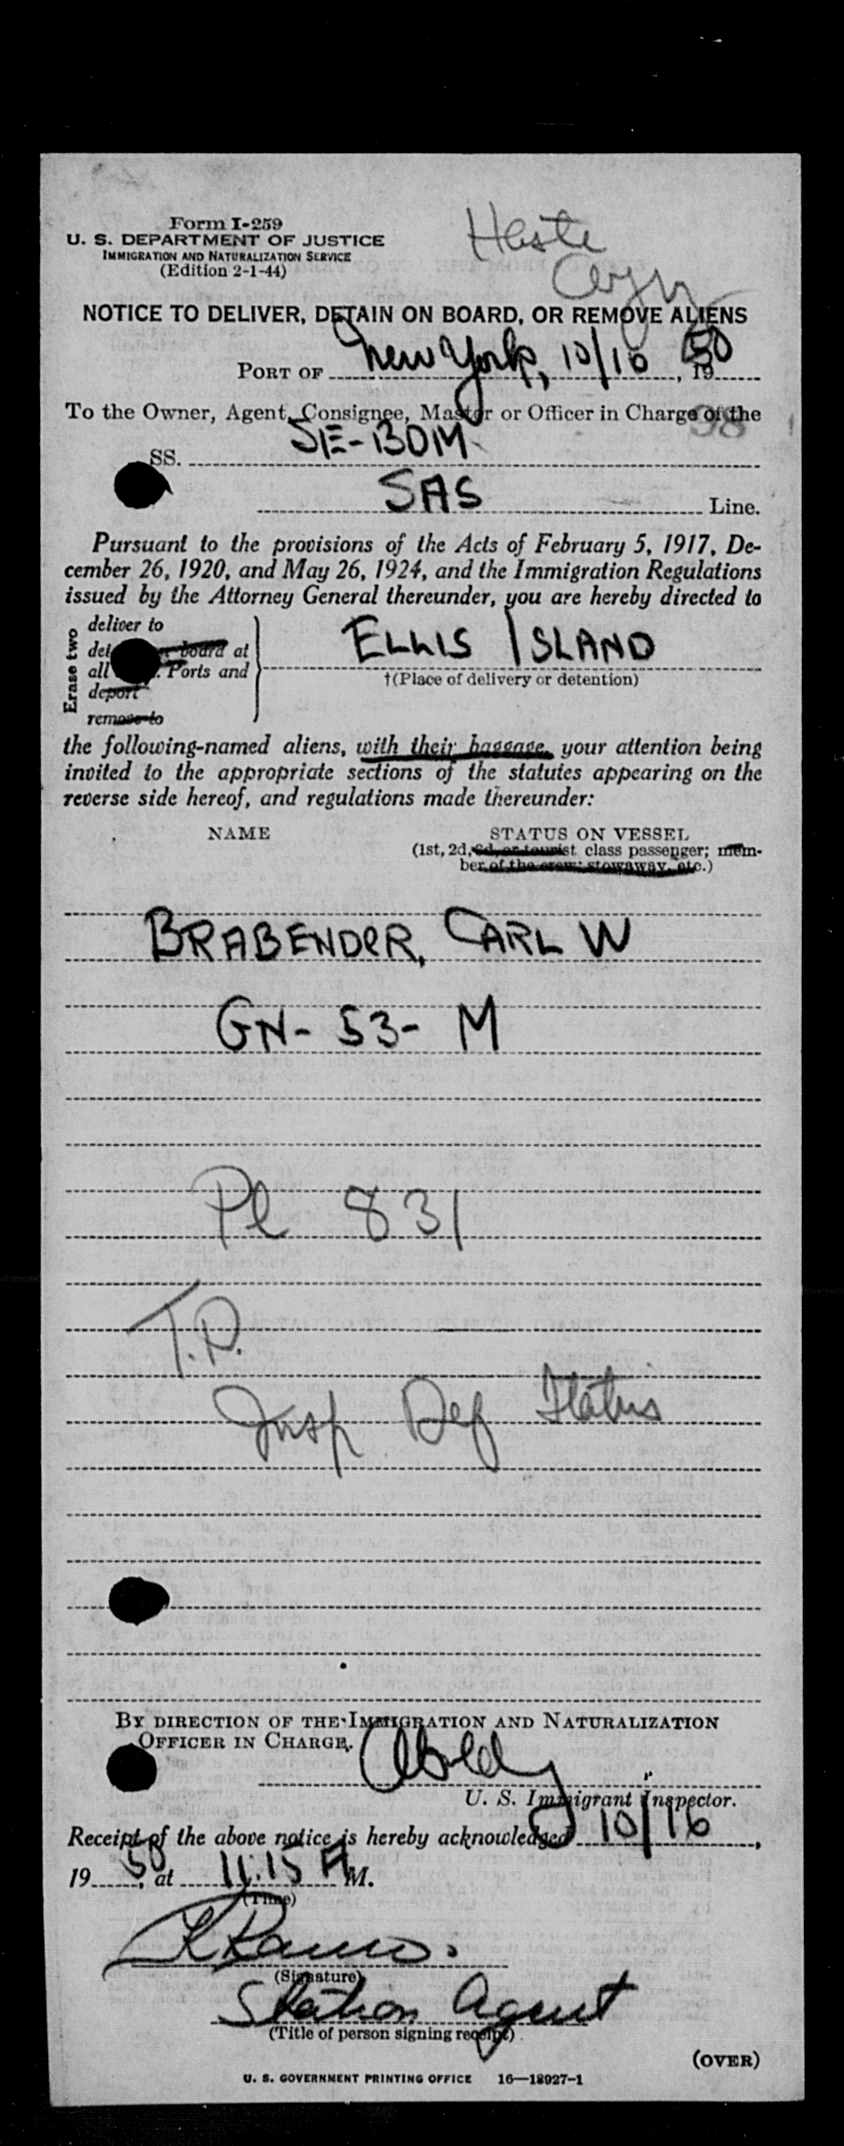 Form I-259
U. S. DEPARTMENT OF JUSTICE
IMMIGRATION AND NATURALIZATION SERVICE
(Edition 2-1-44)
NOTICE TO DELIVER, DETAIN ON BOARD, OR REMOVE ALIENS
PORT OF New York, 10/16, 1950
To the Owner, Agent, Consignee, Master or Officer in Charge of the
98
SS. SE-BDM
SAS Line.
Pursuant to the provisions of the Acts of February 5, 1917, De-
cember 26, 1920, and May 26, 1924, and the Immigration Regulations
issued by the Attorney General thereunder, you are hereby directed to
Erase two
deliver to
board at
all Ports and
deport
remove to
ELLIS ISLAND
†(Place of delivery or detention)
the following-named aliens, with their baggage, your attention being
invited to the appropriate sections of the statutes appearing on the
reverse side hereof, and regulations made thereunder:
NAME STATUS ON VESSEL
(1st, 2d, 3d, or tourist class passenger; mem-
ber of the crew; stowaway, etc.)
BRABENDER, CARL W
GN- 53- M
Pl 831
T.P.
Insp Def Status
BY DIRECTION OF THE IMMIGRATION AND NATURALIZATION
OFFICER IN CHARGE.
U. S. Immigrant Inspector.
Receipt of the above notice is hereby acknowledged 10/16,
1950, at 11.15 A M.
(Time)
(Signature)
Station Agent
(Title of person signing receipt)
(OVER)
U. S. GOVERNMENT PRINTING OFFICE 16—18927-1